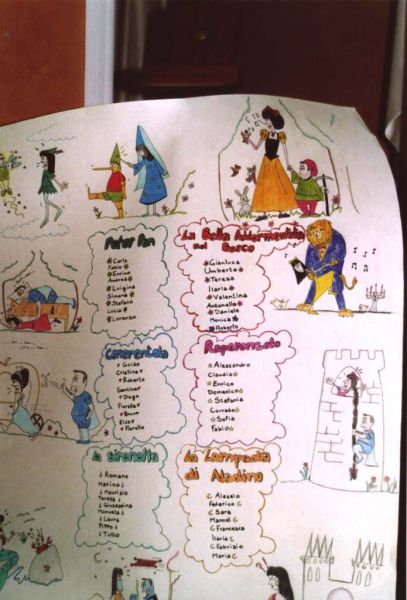 Peter Pan
Carlo
Fabio
Enrico
Andrea
Luigina
Simona
Stefano
Lucia
Lorenzo
La Bella Addormentata
nel Bosco
Gianluca
Umberto
Teresa
Ilaria
Valentina
Antonella
Daniele
Monica
Roberto
Cenerentola
Guido
Cristina
Roberto
Santina
Diego
Fiorella
Bruno
Elisa
Fiorello
Raperonzolo
Alessandro
Claudio
Enrico
Domenico
Stefania
Corrado
Sofia
Fabio
La Sirenetta
Romano
Marino
Maurizio
Teresa
Giuseppina
Manuela
Laura
Pippo
Tullio
La Lampada
di Aladino
Alessio
Federico
Sara
Manuel
Francesca
Ilaria
Fabrizio
Maria